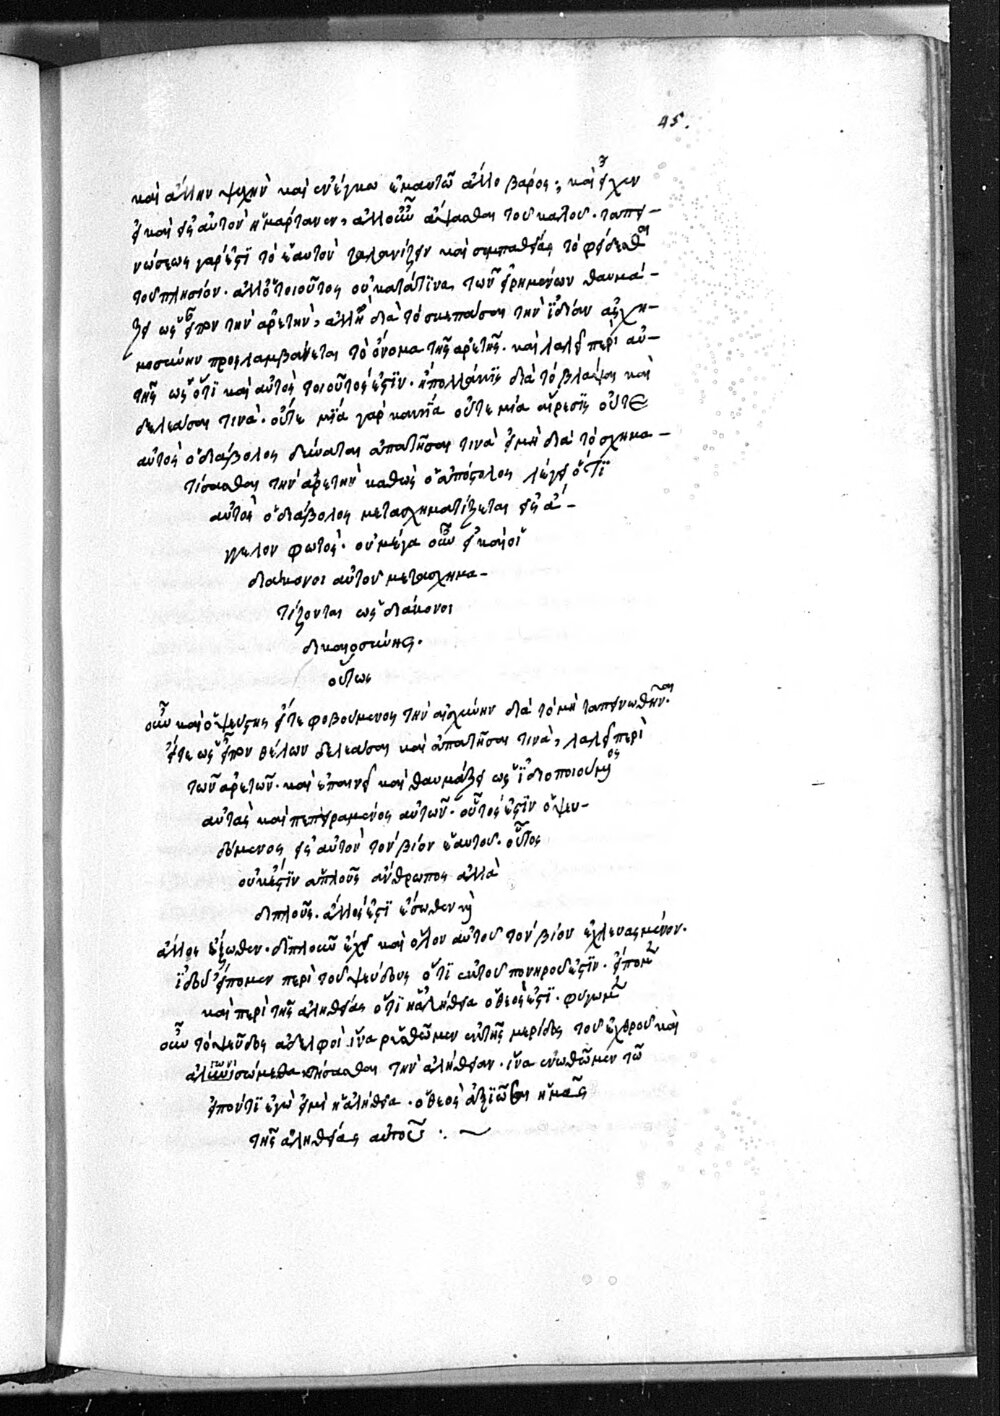 45.
καὶ ἄλλην ψυχὴν καὶ ἐνέγκω ἐμαυτῶ ἄλλο βάρος; καὶ εἶχεν
εἰ καὶ εἰς αὐτὸν ἡμάρτανεν, ἀλλοὖν ἅψασθαι τοῦ καλοῦ. ταπει-
νώσεως γάρ ἐστὶ τὸ ἑαυτὸν ταλανίζειν καὶ συμπαθείας τὸ φείδεσθαι
τοῦ πλησίον. ἀλλ' ὁ τοιοῦτος οὐ κατάτινα τῶν εἰρημένων θαυμά-
ζει ὡς εἶπον τὴν ἀρετὴν, ἀλλ' ἢ διὰ τὸ σκεπάσαι τὴν ἰδίαν ἀσχη-
μοσύνην προσλαμβάνεται τὸ ὄνομα τῆς ἀρετῆς. καὶ λαλεῖ περὶ αὐ-
τῆς ὡς ὅτι καὶ αὐτὸς τοιοῦτος ἐστὶν. ἢ πολλάκις διὰ τὸ βλάψαι καὶ
δελεάσαι τινὰ. οὔτε μΐα γὰρ κακία οὔτε μία αἵρεσις οὔτε
αὐτὸς ὁ διάβολος δύναται ἀπατῆσαι τινὰ εἰ μὴ διὰ τὸ σχημα-
τίσασθαι τὴν ἀρετὴν καθὼς ὁ ἀπόστολος λέγει ὅτι
αὐτὸς ὁ διάβολος μετασχηματίζεται εἰς ἄ-
γγελον φωτὸς. οὐ μέγα οὖν εἰ καὶ οἱ
διάκονοι αὐτοῦ μετασχημα-
τίζονται ὡς διάκονοι
δικαιοσύνης.
οὕτως
οὖν καὶ ὁ ψεύστης εἴτε φοβούμενος τὴν αἰσχύνην διὰ τὸ μὴ ταπεινωθῆναι.
εἴτε ὡς εἶπον θέλων δελεάσαι καὶ ἀπατῆσαι τινὰ, λαλεῖ περὶ
τῶν ἀρετῶν. καὶ ἐπαινεῖ καὶ θαυμάζει ὡς ἰδιοποιούμενος
αὐτὰς καὶ πεπειραμένος αὐτῶν. οὗτός ἐστὶν ὁ ψευ-
δόμενος εἰς αὐτὸν τὸν βίον ἑαυτοῦ. οὗτος
οὐκ ἔστιν ἁπλοῦς ἄνθρωπος ἀλλὰ
διπλοῦς. ἄλλος ἐστὶ ἔσωθεν καὶ
ἄλλος ἔξωθεν. διπλοῦν ἔχει καὶ ὅλον αὐτοῦ τὸν βίον ἐχλευασμένον.
ἰδοὺ εἴπομεν περὶ τοῦ ψεύδους ὅτι ἐκ τοῦ πονηροῦ ἐστὶν. εἴπομεν
καὶ περὶ τῆς ἀληθείας ὅτι ἡ ἀλήθεια ὁ θεός ἐστὶ. φύγωμεν
οὖν τὸ ψεῦδος ἀδελφοὶ. ἵνα ρυσθῶμεν ἐκ τῆς μερίδος τοῦ ἐχθροῦ καὶ
ἀγωνισώμεθα κτήσασθαι τὴν ἀλήθειαν. ἵνα ἑνωθῶμεν τῶ
εἰπόντι ἐγώ εἰμι ἡ ἀλήθεια. ὁ θεὸς ἀξιῶσαι ἡμᾶς
τῆς ἀληθείας αὐτοῦ :. ~